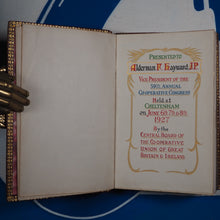 PRESENTED TO
Alderman F. Hayward J.P
VICE PRESIDENT OF THE
59TH ANNUAL
CO-OPERATIVE CONGRESS
Held at
CHELTENHAM
on JUNE 6TH 7TH & 8TH
1927
By the
CENTRAL BOARD OF
THE CO-OPERATIVE
UNION OF GREAT
BRITAIN & IRELAND